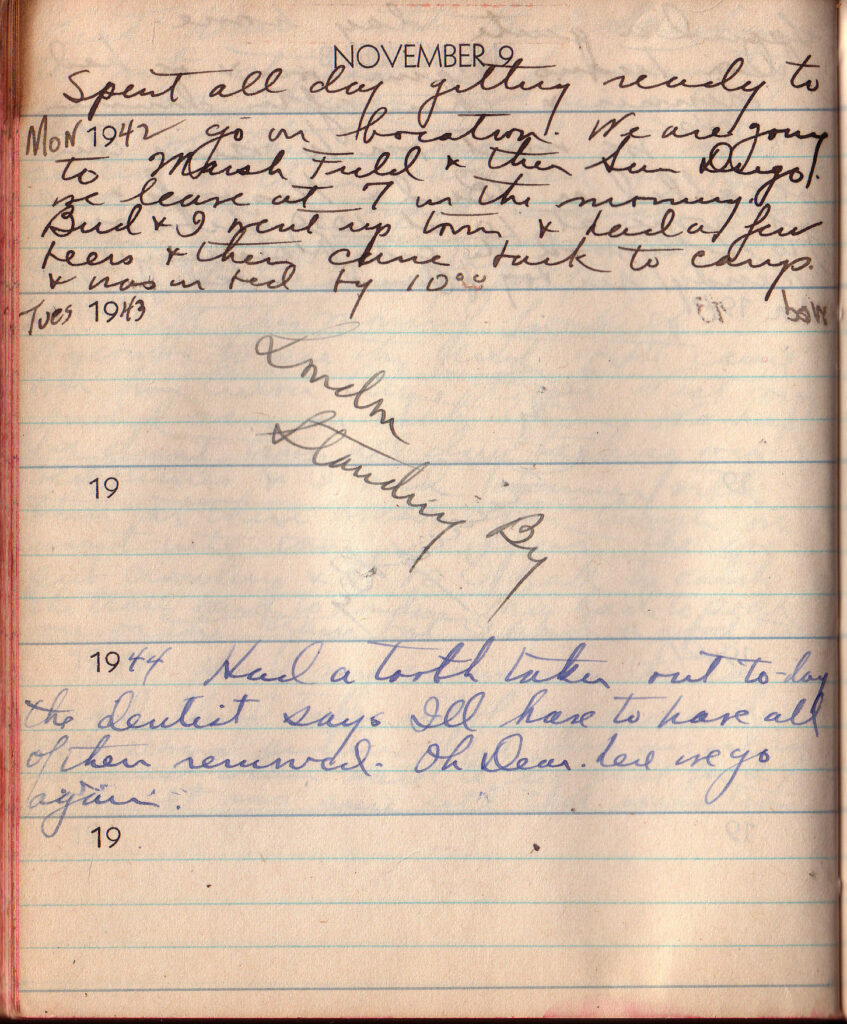 NOVEMBER 9
Spent all day getting ready to
Mon 1942 go on location. We are going
to Marsh Field & then San Diego.
we leave at 7 in the morning.
Bud & I went up town & had a few
beers & then came back to camp.
& was in bed by 10 00
Tues 1943
London
Standing By
19
1944 Had a tooth taken out to-day
the dentist says I'll have to have all
of them removed. Oh Dear. here we go
again.
19